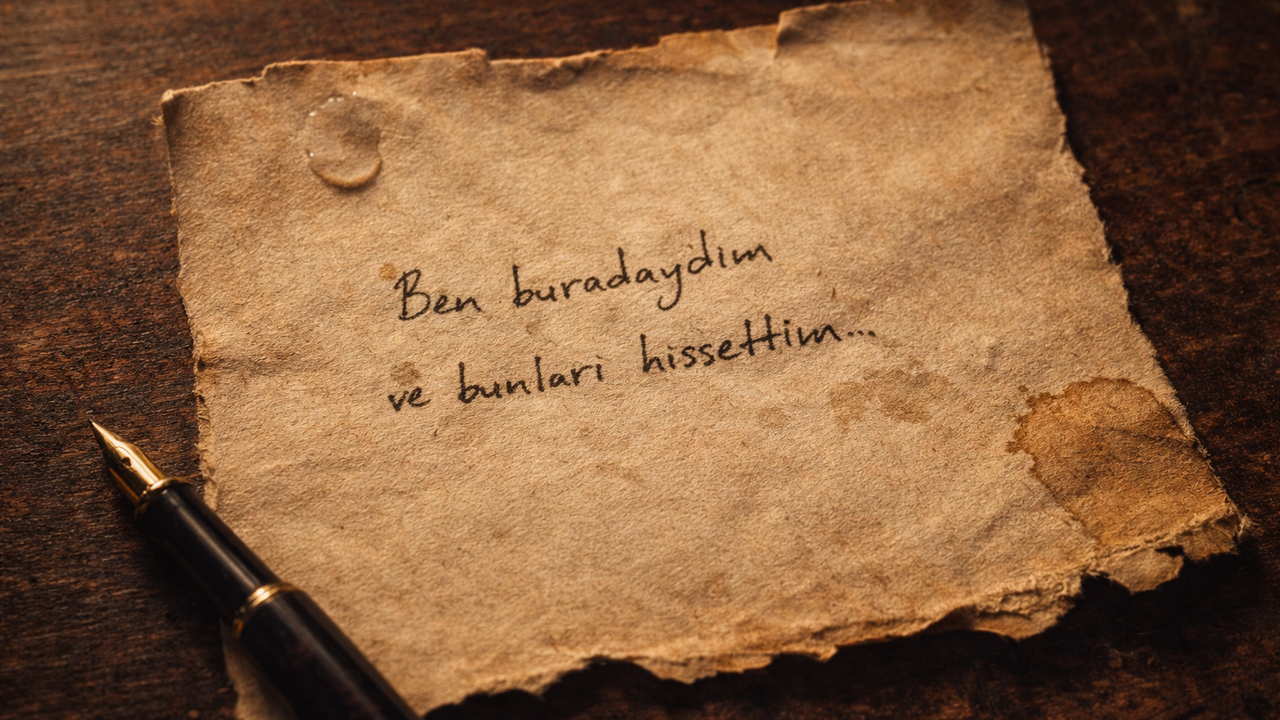 Ben buradaydim
ve bunlari hissettim...